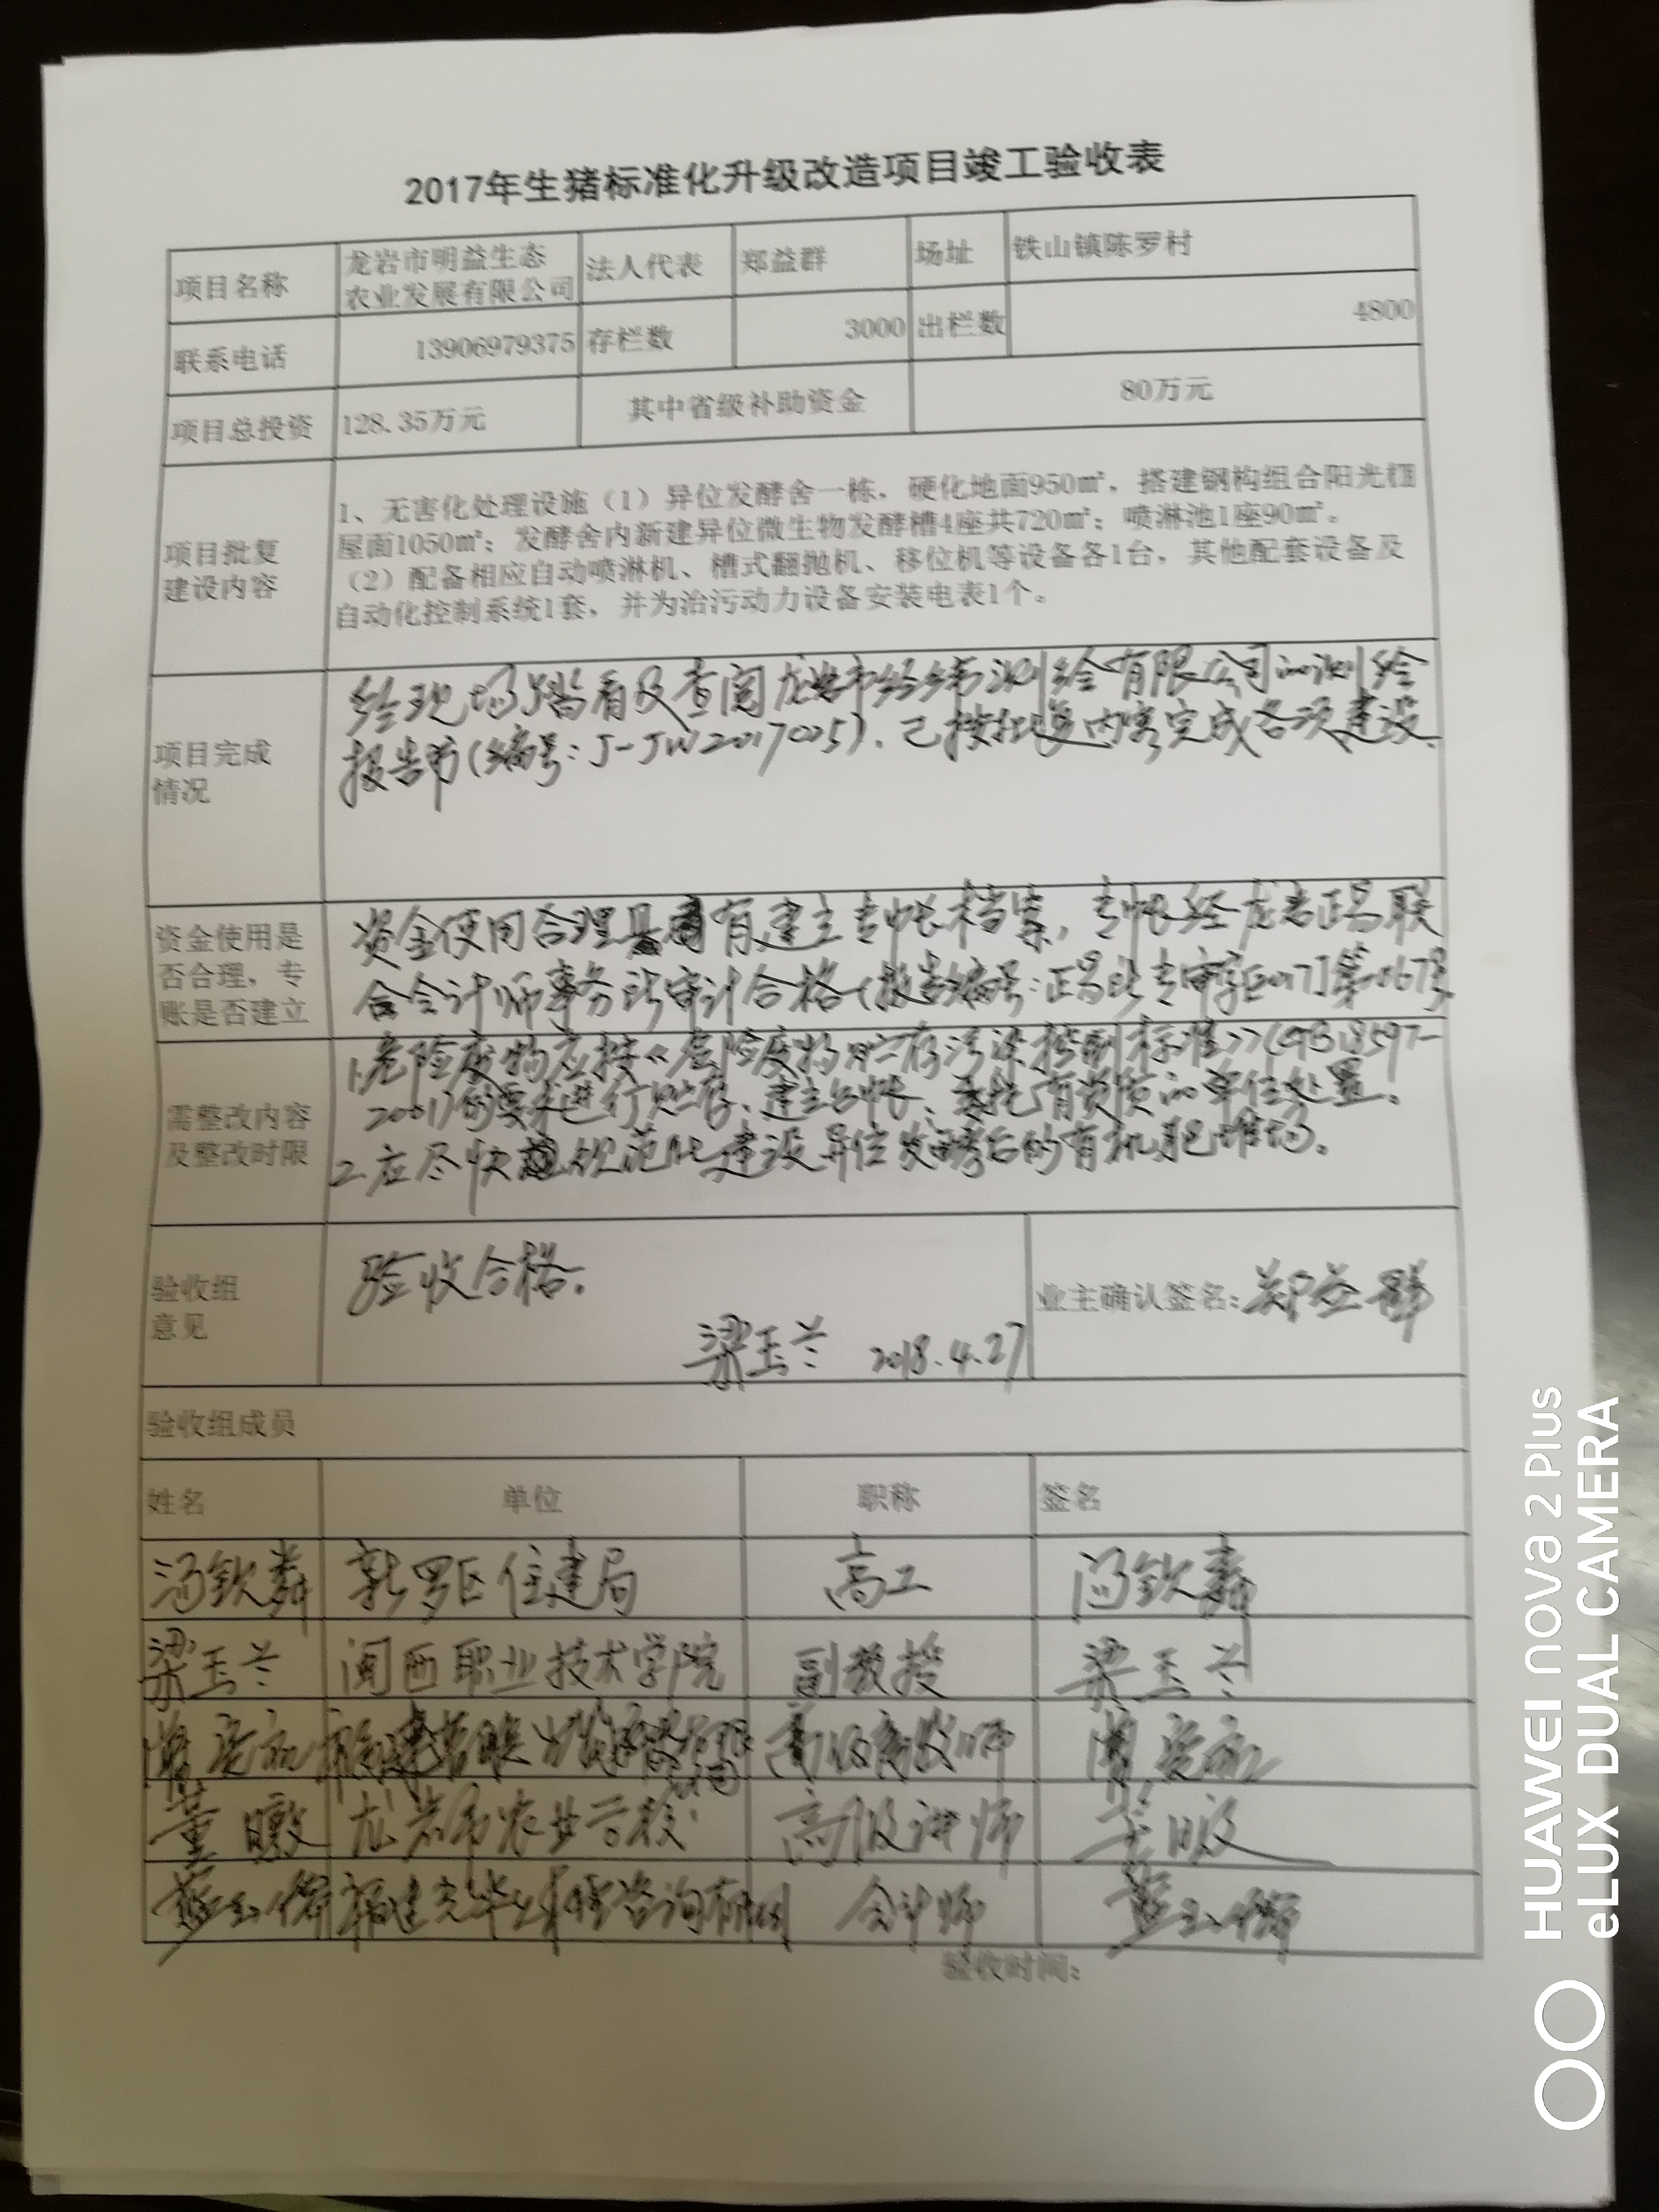 2017年生猪标准化升级改造项目竣工验收表
项目名称 龙岩市明益生态农业发展有限公司 法人代表 郑益群 场址 铁山镇陈罗村
联系电话 13906979375 存栏数 3000 出栏数 4800
项目总投资 128.35万元 其中省级补助资金 80万元
项目批复
建设内容
1、无害化处理设施（1）异位发酵舍一栋，硬化地面950㎡，搭建钢构组合阳光棚
屋面1050㎡；发酵舍内新建异位微生物发酵槽4座共720㎡；喷淋池1座90㎡。
（2）配备相应自动喷淋机、槽式翻抛机、移位机等设备各1台，其他配套设备及
自动化控制系统1套，并为治污动力设备安装电表1个。
项目完成
情况
经现场踏看及查阅龙岩市经纬测绘有限公司的测绘
报告书(编号:J-JW2017005).已按批复内容完成各项建设.
资金使用是
否合理，专
账是否建立
资金使用合理 有建立专帐档案,专帐经龙岩正昌联
合会计师事务所审计合格(报告编号:正昌所专审字[2017]第067号
需整改内容
及整改时限
1.危险废物应按《危险废物贮存污染控制标准》(GB18597-
2001)的要求进行贮存、建立台帐、委托有资质的单位处置.
2.应尽快 规范化建设异位发酵后的有机肥堆场.
验收组
意见
验收合格.
梁玉兰 2018.4.27
业主确认签名:郑益群
验收组成员
姓名 单位 职称 签名
汤钦 新罗区住建局 高工 汤钦
梁玉兰 闽西职业技术学院 副教授 梁玉兰
高级畜牧师
董暾 龙岩市农业学校 高级讲师 董暾
蓝玉 福建 咨询有限 会计师 蓝玉
验收时间:
HUAWEI nova 2 Plus
eLUX DUAL CAMERA